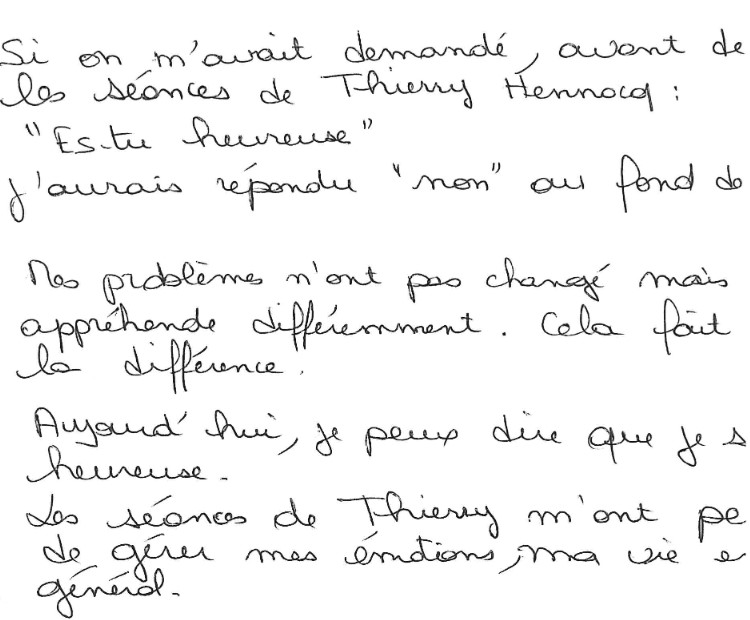 Si on m'avait demandé, avant de
les séances de Thierry Hennocq :
"Es-tu heureuse"
j'aurais répondu "non" au fond de
Mes problèmes n'ont pas changé mais
appréhende différemment. Cela fait
la différence.
Aujourd'hui, je peux dire que je s
heureuse.
Les séances de Thierry m'ont pe
de gérer mes émotions, ma vie e
général.